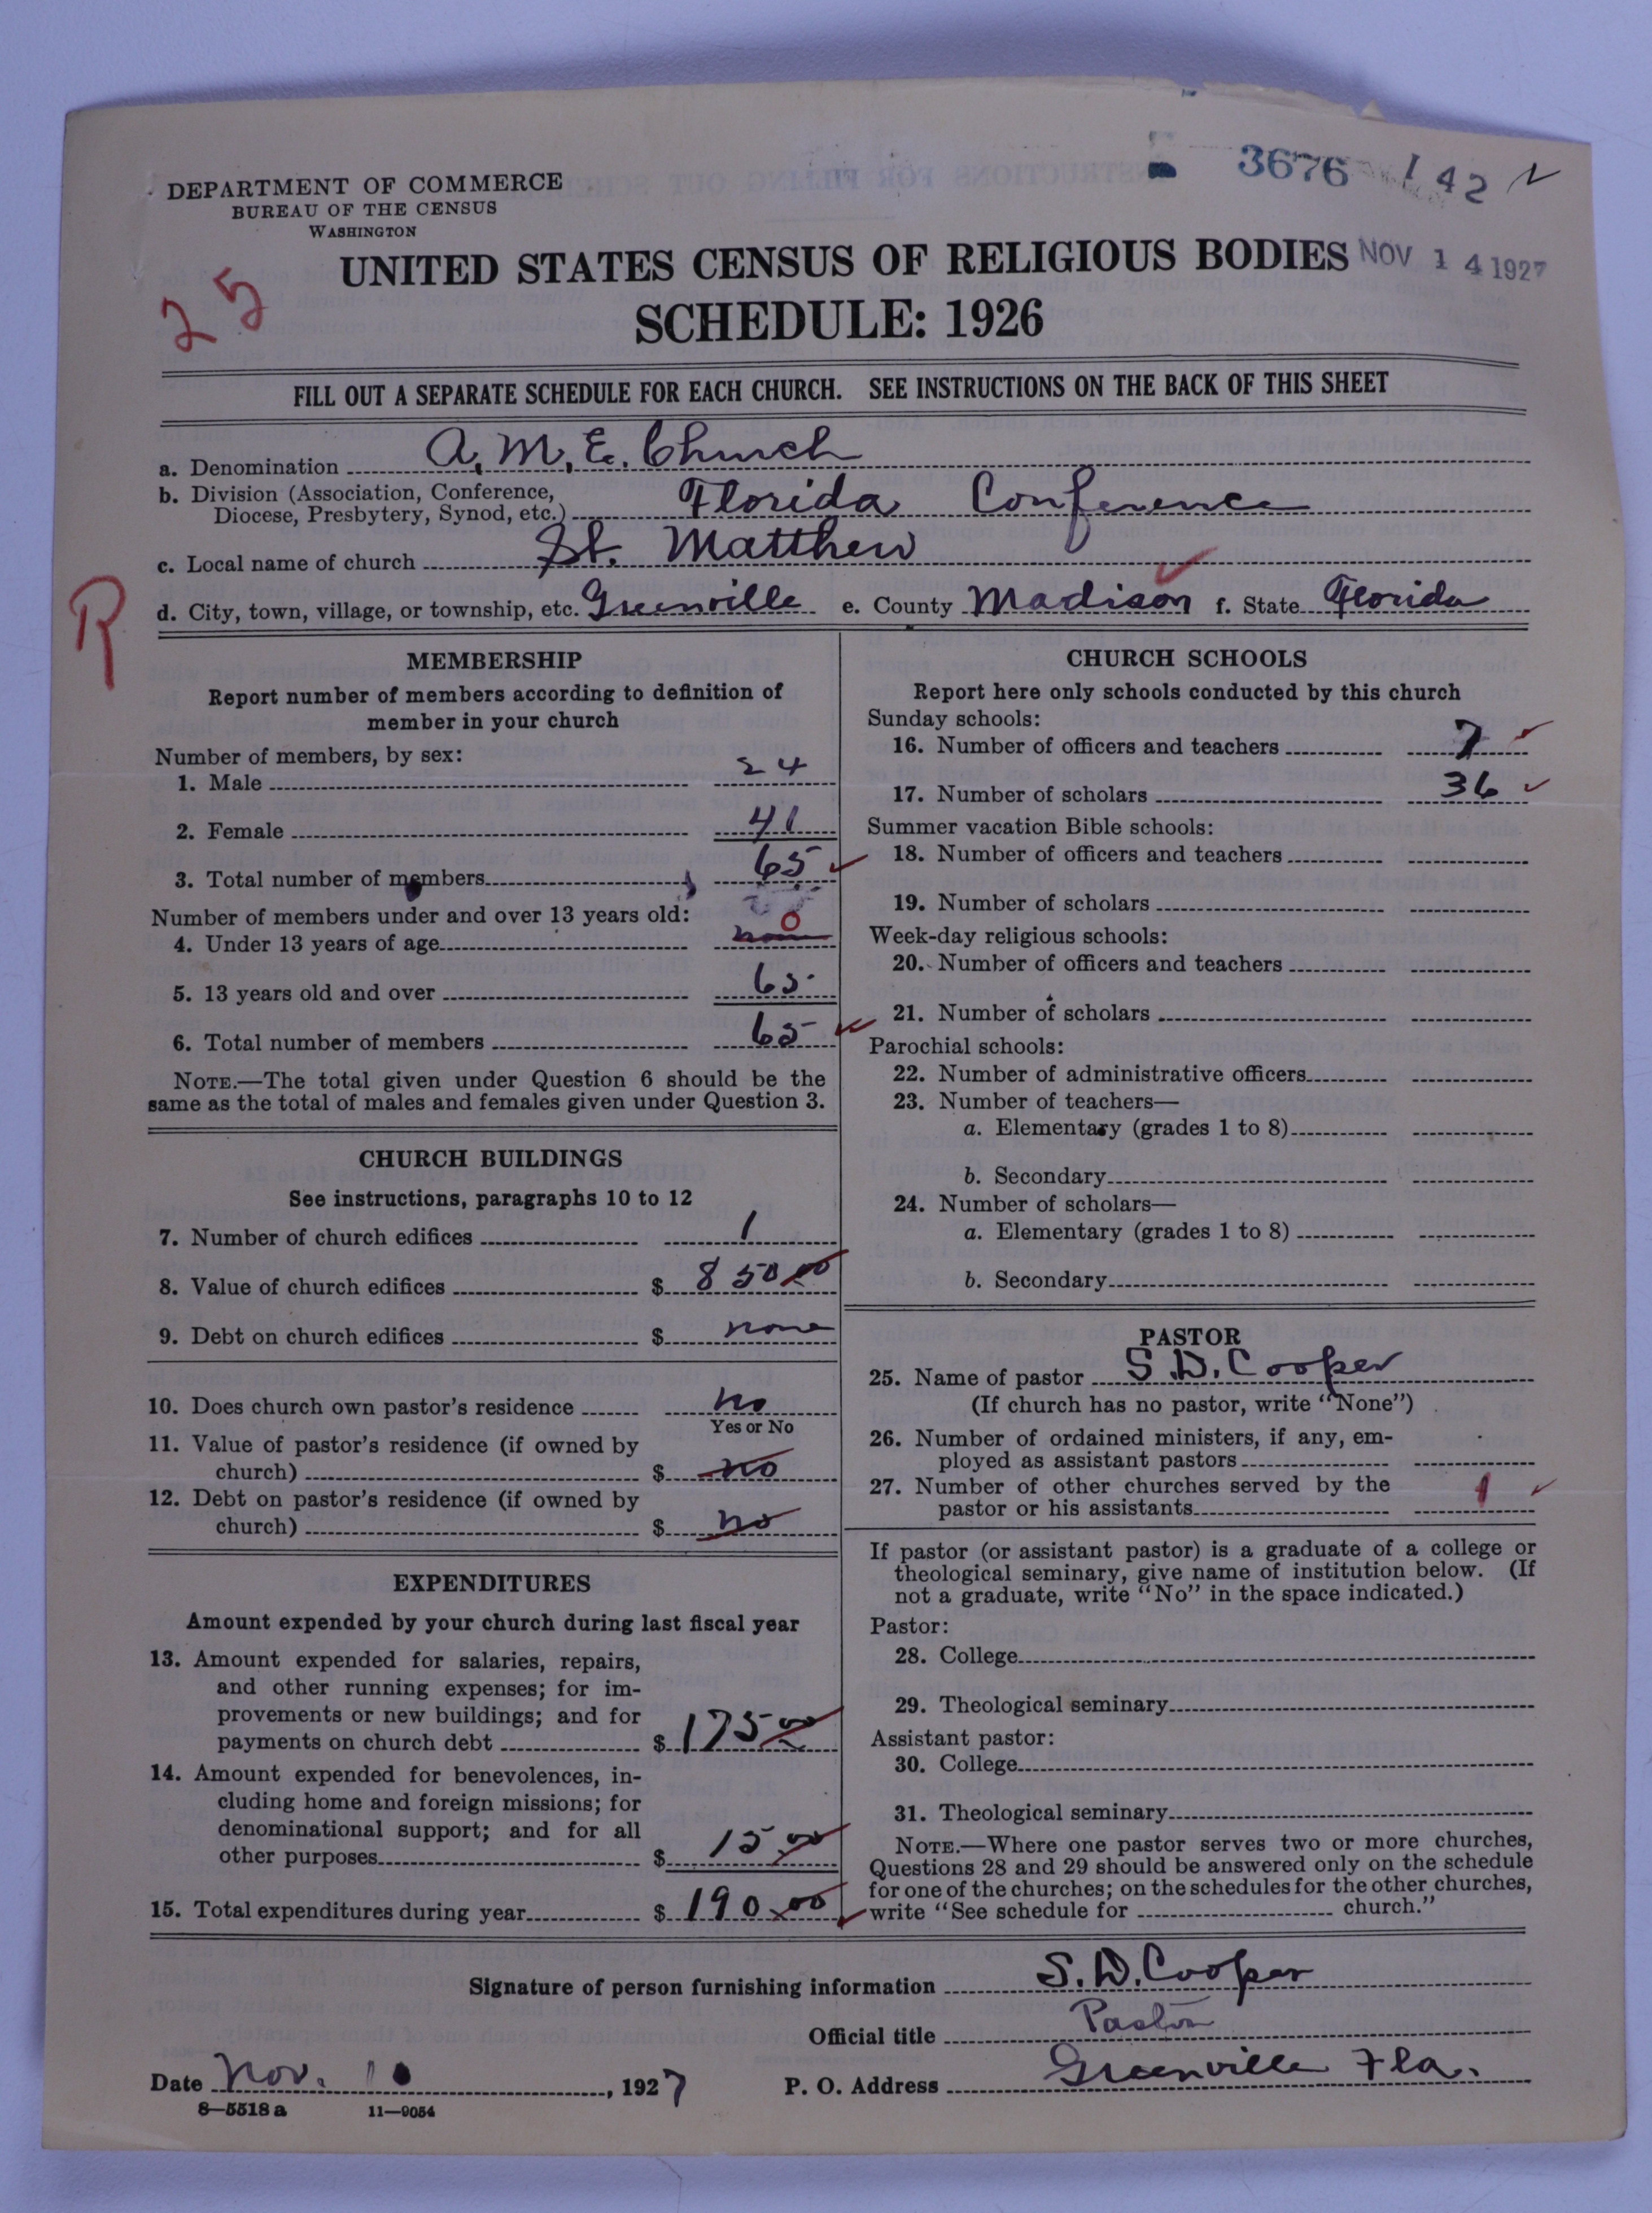 3676 142
DEPARTMENT OF COMMERCE
BUREAU OF THE CENSUS
WASHINGTON
UNITED STATES CENSUS OF RELIGIOUS BODIES NOV 14 1927
25
SCHEDULE: 1926
FILL OUT A SEPARATE SCHEDULE FOR EACH CHURCH. SEE INSTRUCTIONS ON THE BACK OF THIS SHEET
a. Denomination A. M. E. Church
b. Division (Association, Conference,
Diocese, Presbytery, Synod, etc.) Florida Conference
c. Local name of church St. Matthew
R
d. City, town, village, or township, etc. Greenville e. County Madison f. State Florida
MEMBERSHIP
Report number of members according to definition of
member in your church
Number of members, by sex:
1. Male 24
2. Female 41
3. Total number of members 65
Number of members under and over 13 years old:
4. Under 13 years of age none 0
5. 13 years old and over 65
6. Total number of members 65
NOTE.—The total given under Question 6 should be the
same as the total of males and females given under Question 3.
CHURCH BUILDINGS
See instructions, paragraphs 10 to 12
7. Number of church edifices 1
8. Value of church edifices $ 850 00
9. Debt on church edifices $ none
10. Does church own pastor's residence no
Yes or No
11. Value of pastor's residence (if owned by
church) $ no
12. Debt on pastor's residence (if owned by
church) $ no
EXPENDITURES
Amount expended by your church during last fiscal year
13. Amount expended for salaries, repairs,
and other running expenses; for im-
provements or new buildings; and for
payments on church debt $ 175 00
14. Amount expended for benevolences, in-
cluding home and foreign missions; for
denominational support; and for all
other purposes $ 15.00
15. Total expenditures during year $ 190.00
CHURCH SCHOOLS
Report here only schools conducted by this church
Sunday schools:
16. Number of officers and teachers 7
17. Number of scholars 36
Summer vacation Bible schools:
18. Number of officers and teachers
19. Number of scholars
Week-day religious schools:
20. Number of officers and teachers
21. Number of scholars
Parochial schools:
22. Number of administrative officers
23. Number of teachers—
a. Elementary (grades 1 to 8)
b. Secondary
24. Number of scholars—
a. Elementary (grades 1 to 8)
b. Secondary
PASTOR
25. Name of pastor S. D. Cooper
(If church has no pastor, write "None")
26. Number of ordained ministers, if any, em-
ployed as assistant pastors
27. Number of other churches served by the
pastor or his assistants 1
If pastor (or assistant pastor) is a graduate of a college or
theological seminary, give name of institution below. (If
not a graduate, write "No" in the space indicated.)
Pastor:
28. College
29. Theological seminary
Assistant pastor:
30. College
31. Theological seminary
NOTE.—Where one pastor serves two or more churches,
Questions 28 and 29 should be answered only on the schedule
for one of the churches; on the schedules for the other churches,
write "See schedule for church."
Signature of person furnishing information S. D. Cooper
Official title Pastor
Date Nov. 10, 1927 P. O. Address Greenville Fla.
8—5518 a 11—9054